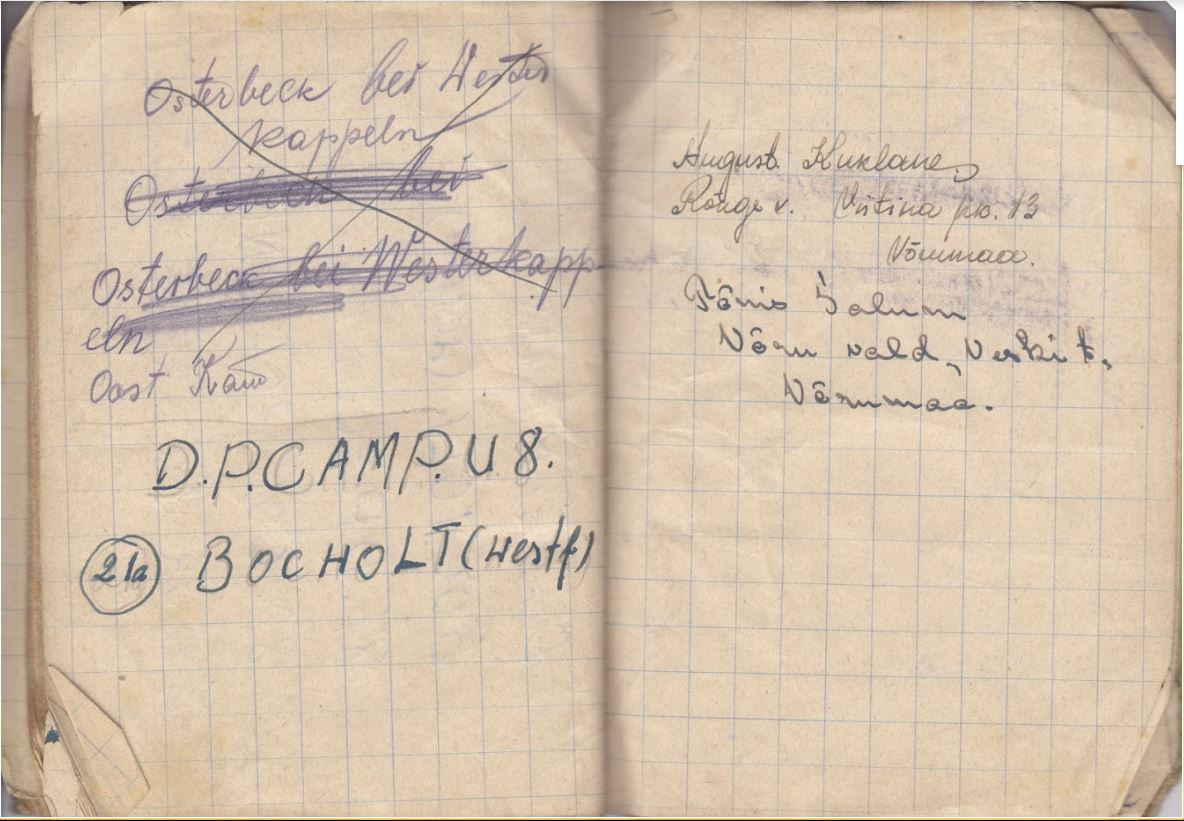 Osterbeck bei Wester
kappeln
Osterbeck bei
Osterbeck bei Westerkapp
eln
Oost
D.P.CAMP.U8.
21a BOCHOLT (Westf)
August Kuklane,
Rõuge v. Viitina pk. 13
Võrumaa.
Tõnis Salum
Võru vald, Veski t.
Võrumaa.